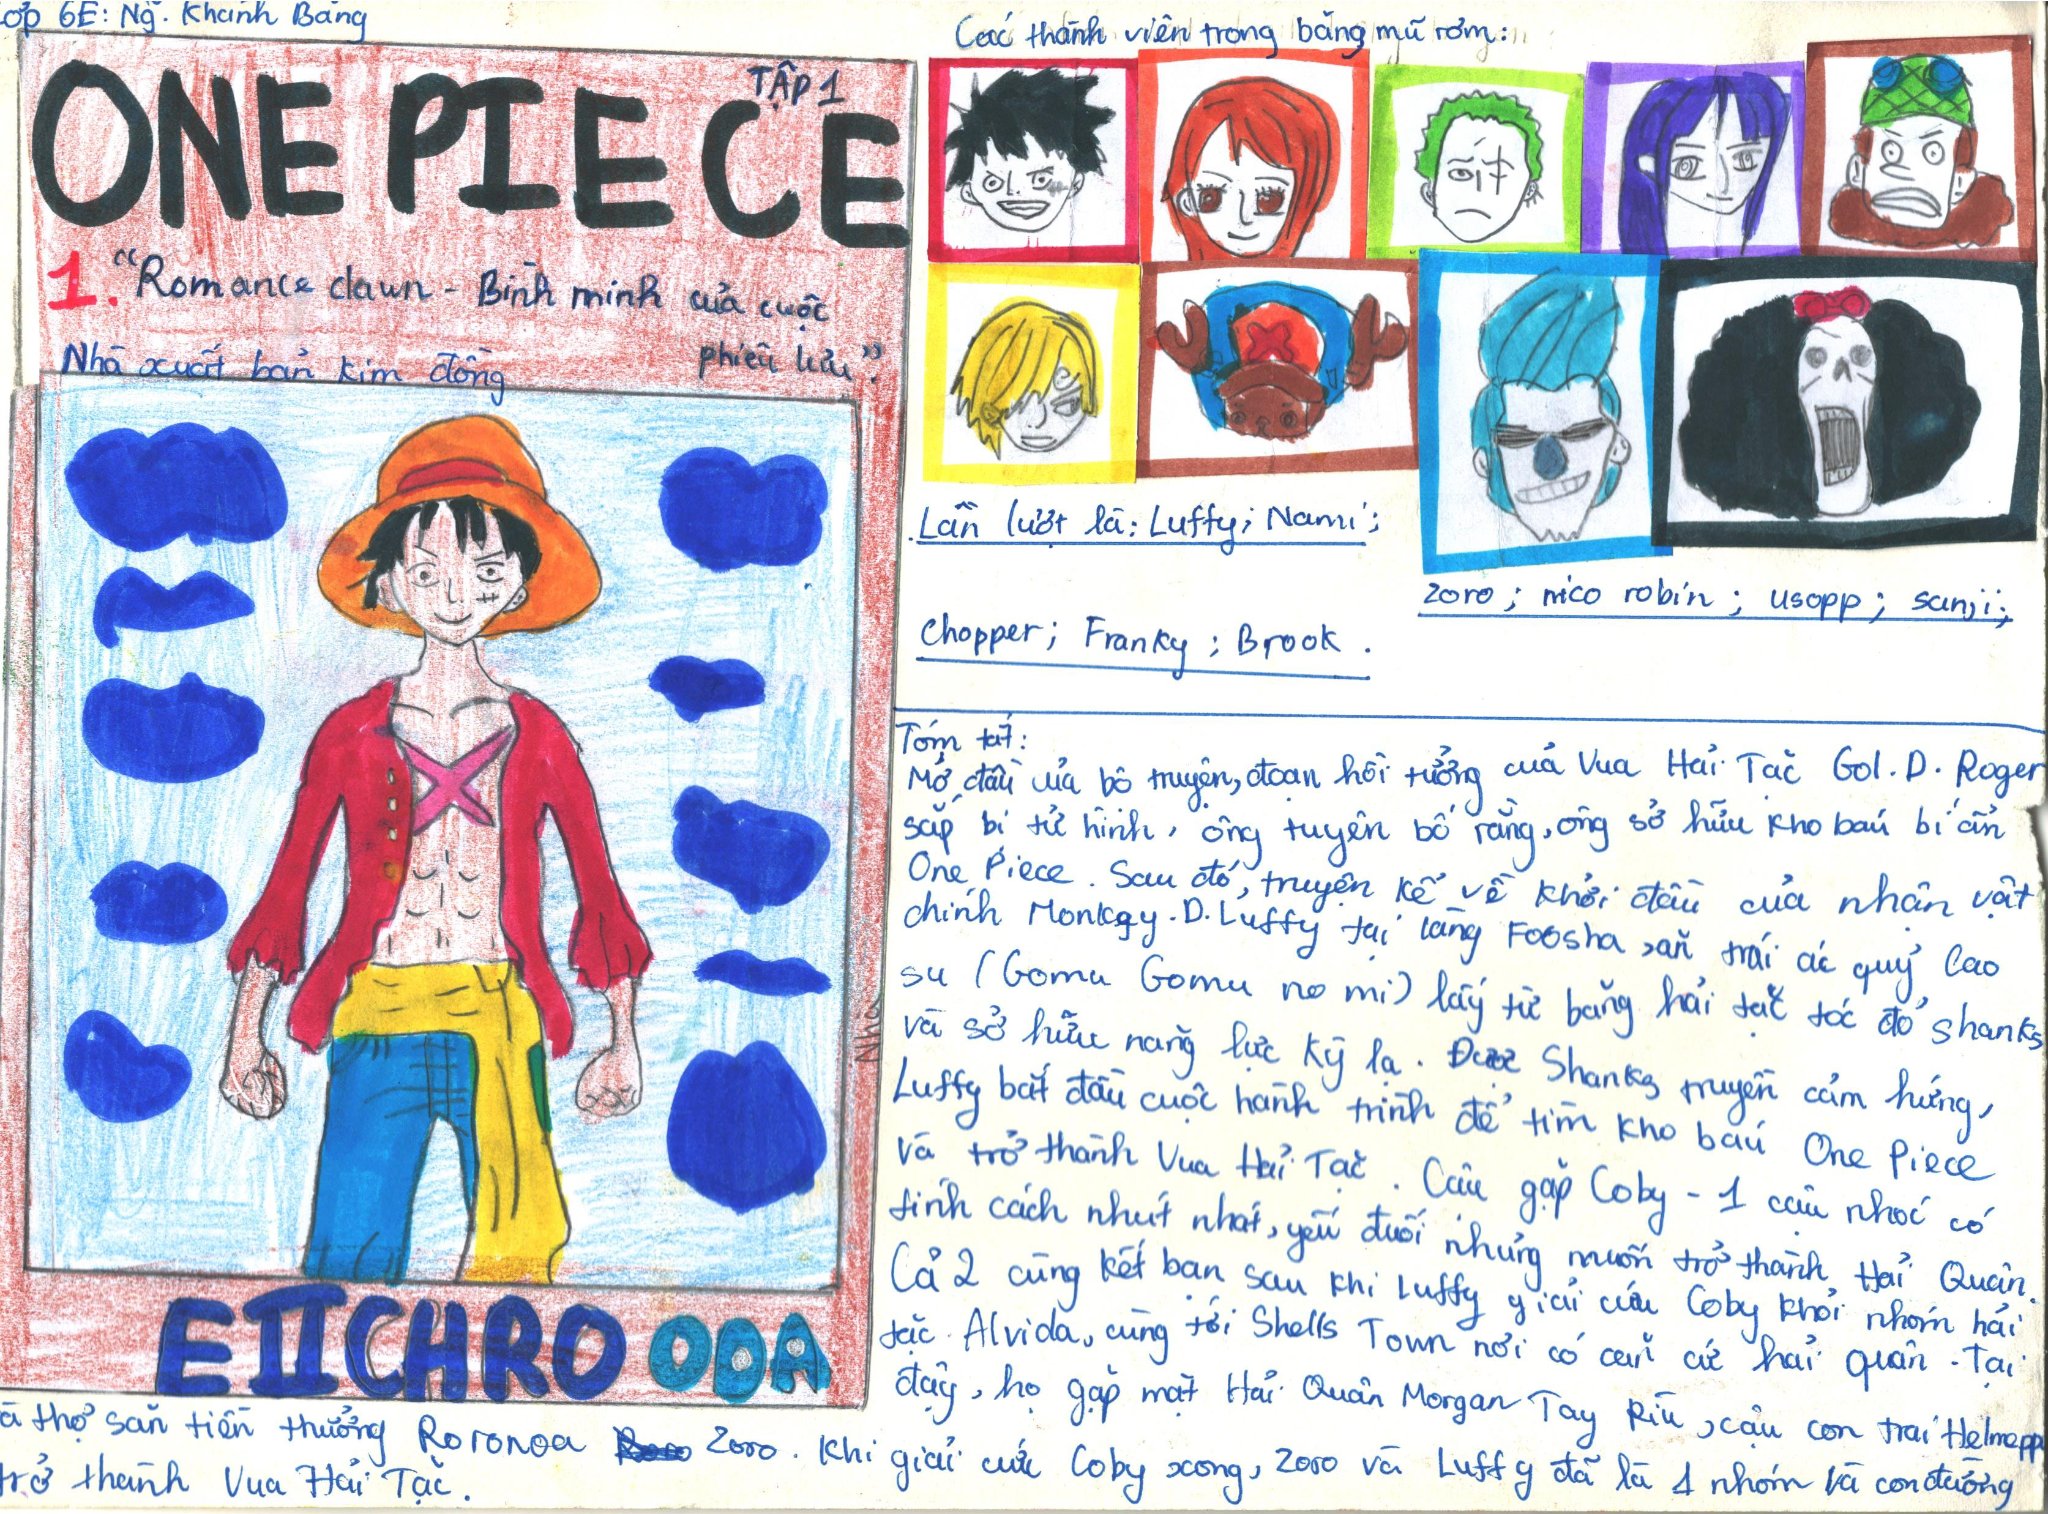 Lớp 6E: Ng. Khánh Băng
ONE PIECE
TẬP 1
1. "Romance dawn - Bình minh của cuộc
phiêu lưu".
Nhà xuất bản kim đồng
EIICHRO ODA
Các thành viên trong băng mũ rơm:
Lần lượt là: Luffy; Nami;
zoro; nico robin; usopp; sanji;
chopper; Franky; Brook.
Tóm tắt:
Mở đầu của bộ truyện, đoạn hồi tưởng của Vua Hải Tặc Gol. D. Roger
sắp bị tử hình, ông tuyên bố rằng, ông sở hữu kho báu bí ẩn
One Piece. Sau đó, truyện kể về khởi đầu của nhân vật
chính Monkey.D.Luffy tại làng Foosha, ăn trái ác quỷ Cao
su (Gomu Gomu no mi) lấy từ băng hải tặc tóc đỏ shanks
và sở hữu năng lực kỳ lạ. Được Shanks truyền cảm hứng,
Luffy bắt đầu cuộc hành trình để tìm kho báu One Piece
và trở thành Vua Hải Tặc. Cậu gặp Coby - 1 cậu nhóc có
tính cách nhút nhát, yếu đuối nhưng muốn trở thành Hải Quân.
Cả 2 cùng kết bạn sau khi Luffy giải cứu Coby khỏi nhóm hải
tặc Alvida, cùng tới Shells Town nơi có căn cứ hải quân. Tại
đây, họ gặp mặt Hải Quân Morgan Tay Rìu, cậu con trai Helmepp
và thợ săn tiền thưởng Roronoa Zoro. Khi giải cứu Coby xong, Zoro và Luffy đã là 1 nhóm và con đường
trở thành Vua Hải Tặc.